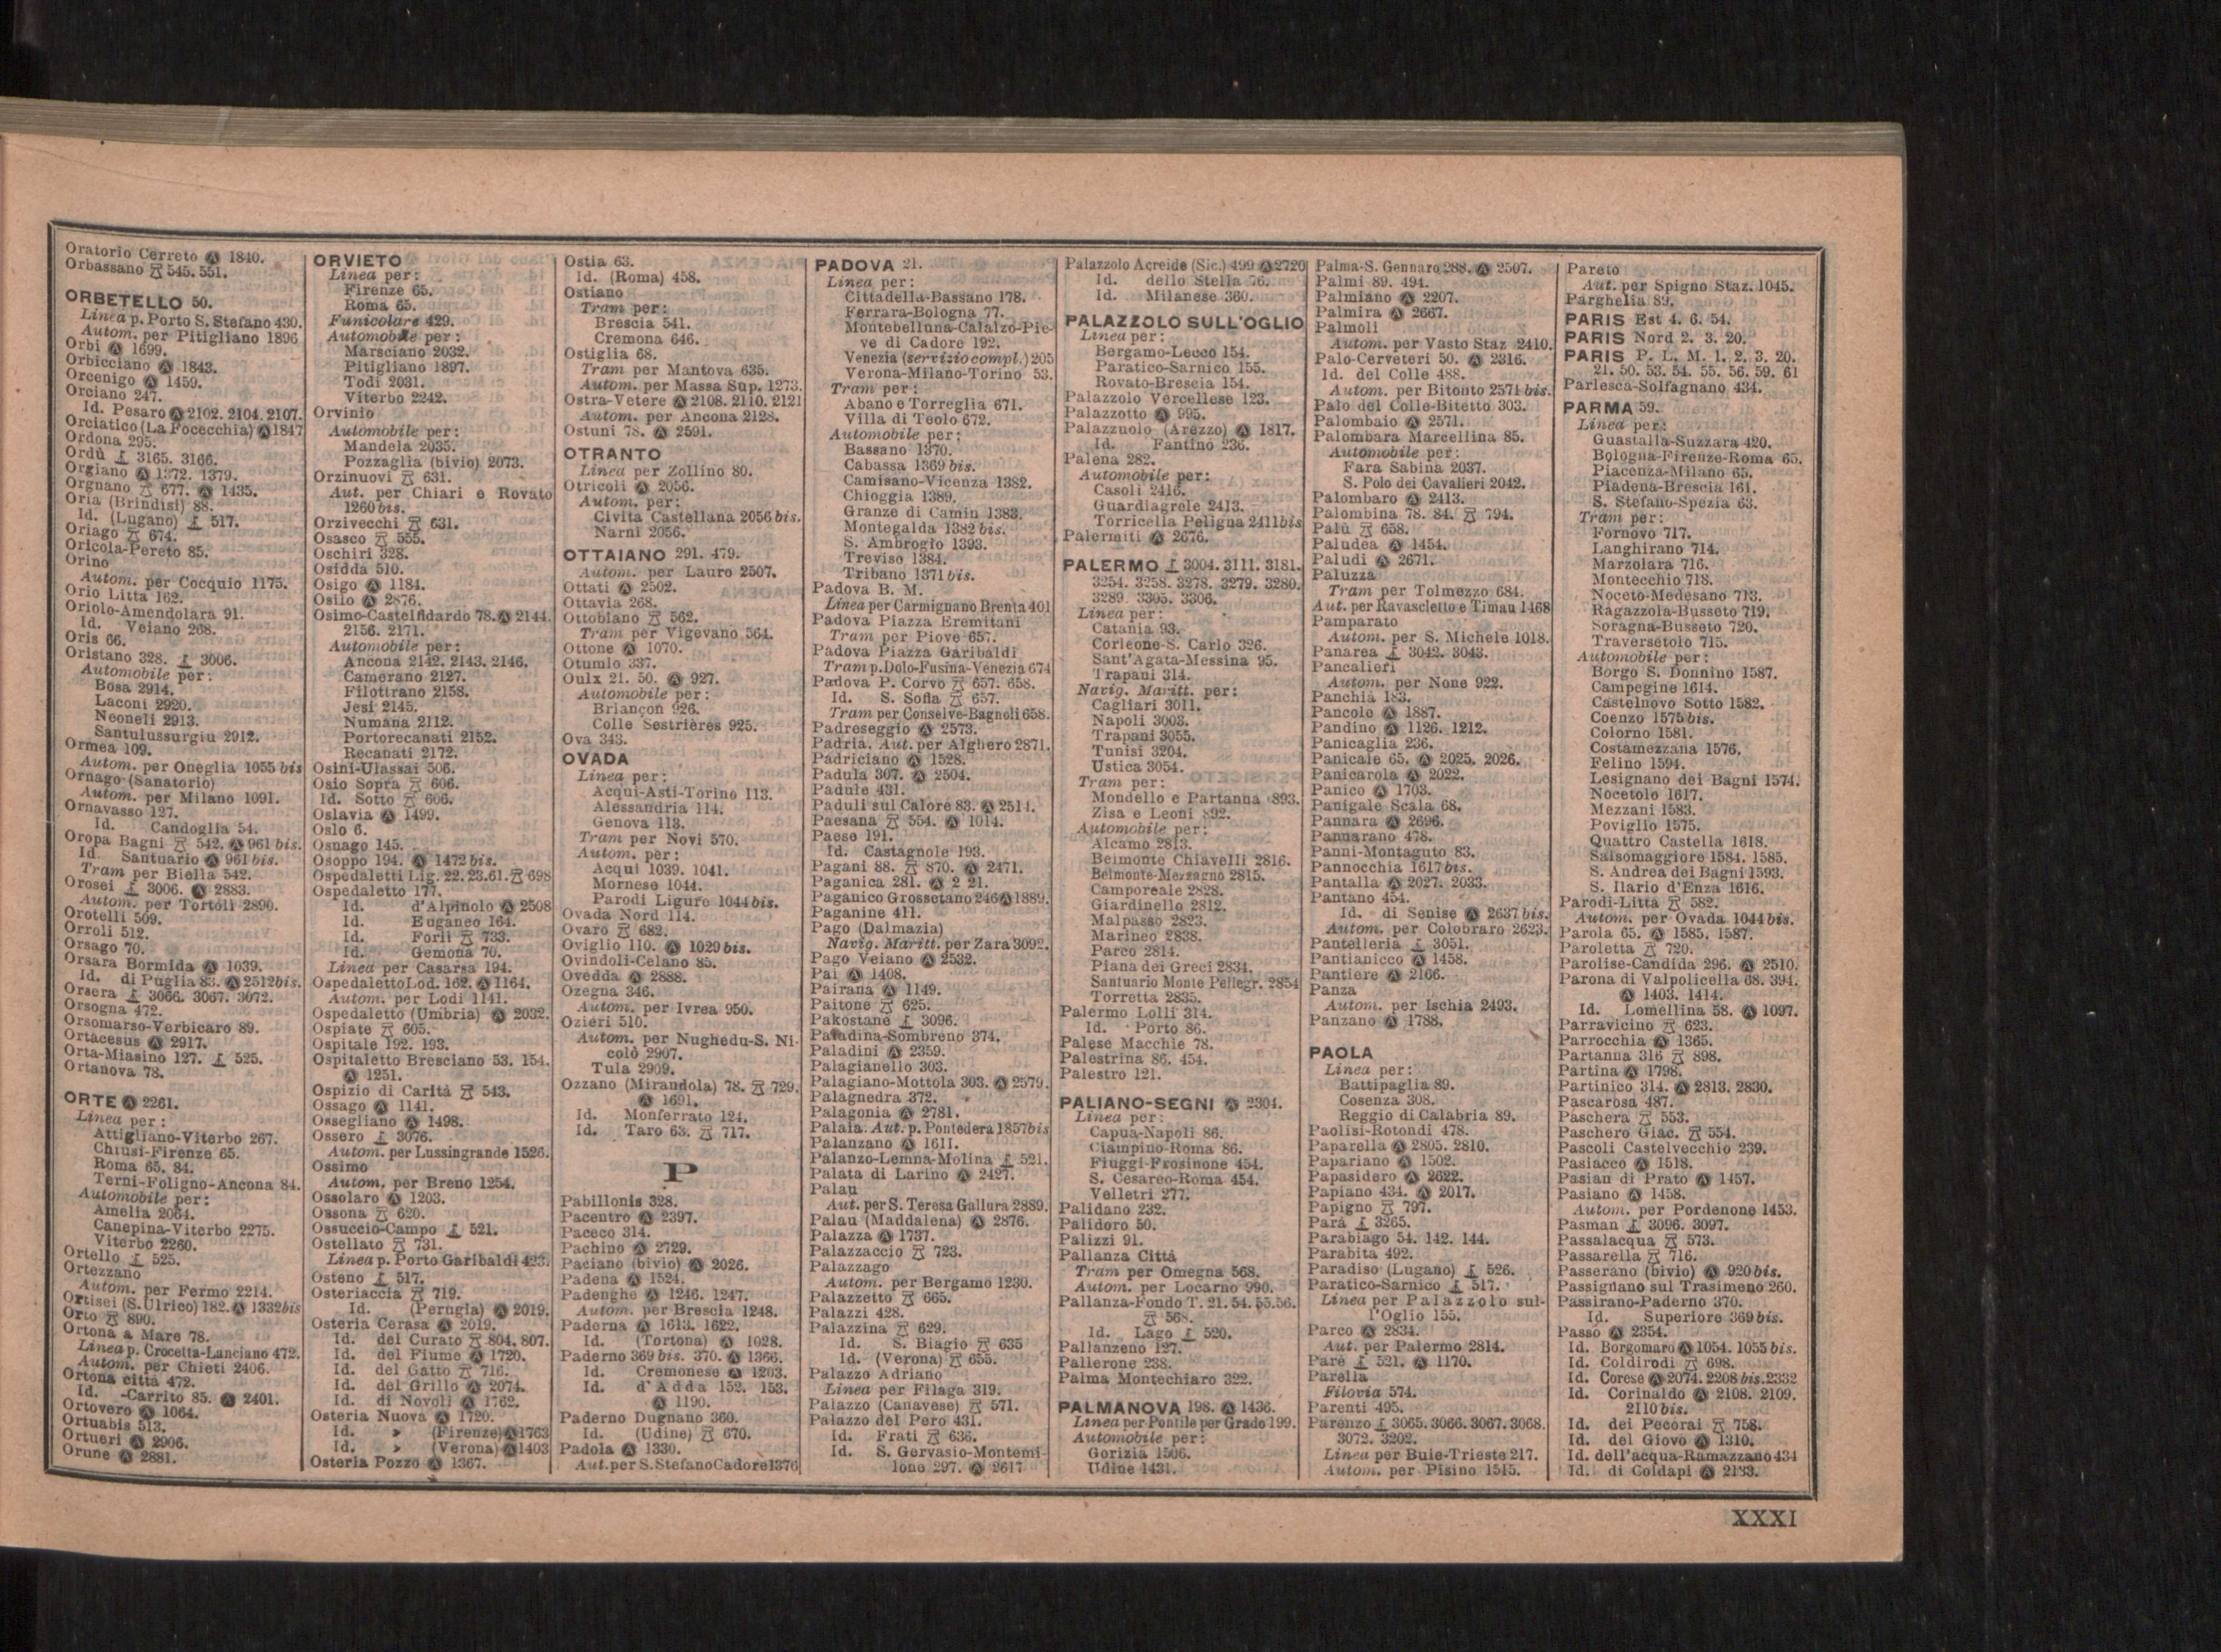 Oratorio Cerreto Ⓐ 1840.
Orbassano 545. 551.
ORBETELLO 50.
Linea p. Porto S. Stefano 430.
Autom. per Pitigliano 1896
Orbi Ⓐ 1699.
Orbicciano Ⓐ 1843.
Orcenigo Ⓐ 1459.
Orciano 247.
Id. Pesaro Ⓐ 2102. 2104. 2107.
Orciatico (La Focecchia) Ⓐ 1847
Ordona 295.
Ordù 3165. 3166.
Orgiano Ⓐ 1372. 1379.
Orgnano 677. Ⓐ 1435.
Oria (Brindisi) 88.
Id. (Lugano) 517.
Oriago 674.
Oricola-Pereto 85.
Orino
Autom. per Cocquio 1175.
Orio Litta 162.
Oriolo-Amendolara 91.
Id. Veiano 268.
Oris 66.
Oristano 328. 3006.
Automobile per:
Bosa 2914.
Laconi 2920.
Neoneli 2913.
Santulussurgiu 2912.
Ormea 109.
Autom. per Oneglia 1055 bis
Ornago (Sanatorio)
Autom. per Milano 1091.
Ornavasso 127.
Id. Candoglia 54.
Oropa Bagni 542. Ⓐ 961 bis.
Id. Santuario Ⓐ 961 bis.
Tram per Biella 542.
Orosei 3006. Ⓐ 2883.
Autom. per Tortolì 2890.
Orotelli 509.
Orroli 512.
Orsago 70.
Orsara Bormida Ⓐ 1039.
Id. di Puglia 83. Ⓐ 2512bis.
Orsera 3066. 3067. 3072.
Orsogna 472.
Orsomarso-Verbicaro 89.
Ortacesus Ⓐ 2917.
Orta-Miasino 127. 525.
Ortanova 78.
ORTE Ⓐ 2261.
Linea per:
Attigliano-Viterbo 267.
Chiusi-Firenze 65.
Roma 65. 84.
Terni-Foligno-Ancona 84.
Automobile per:
Amelia 2064.
Canepina-Viterbo 2275.
Viterbo 2260.
Ortello 525.
Ortezzano
Autom. per Fermo 2214.
Ortisei (S. Ulrico) 182. Ⓐ 1332bis
Orto 890.
Ortona a Mare 78.
Linea p. Crocetta-Lanciano 472.
Autom. per Chieti 2406.
Ortona città 472.
Id. -Carrito 85. Ⓐ 2401.
Ortovero Ⓐ 1064.
Ortuabis 513.
Ortueri Ⓐ 2906.
Orune Ⓐ 2881.
ORVIETO
Linea per:
Firenze 65.
Roma 65.
Funicolare 429.
Automobile per:
Marsciano 2032.
Pitigliano 1897.
Todi 2031.
Viterbo 2242.
Orvinio
Automobile per:
Mandela 2035.
Pozzaglia (bivio) 2073.
Orzinuovi 631.
Aut. per Chiari e Rovato
1260 bis.
Orzivecchi 631.
Osasco 555.
Oschiri 328.
Osidda 510.
Osigo Ⓐ 1184.
Osilo Ⓐ 2876.
Osimo-Castelfidardo 78. Ⓐ 2144.
2156. 2171.
Automobile per:
Ancona 2142. 2143. 2146.
Camerano 2127.
Filottrano 2158.
Jesi 2145.
Numana 2112.
Portorecanati 2152.
Recanati 2172.
Osini-Ulassai 506.
Osio Sopra 606.
Id. Sotto 606.
Oslavia Ⓐ 1499.
Oslo 6.
Osnago 145.
Osoppo 194. Ⓐ 1472 bis.
Ospedaletti Lig. 22. 23. 61. 698
Ospedaletto 177.
Id. d'Alpinolo Ⓐ 2508
Id. Euganeo 164.
Id. Forlì 733.
Id. Gemona 70.
Linea per Casarsa 194.
Ospedaletto Lod. 162. Ⓐ 1164.
Autom. per Lodi 1141.
Ospedaletto (Umbria) Ⓐ 2032.
Ospiate 605.
Ospitale 192. 193.
Ospitaletto Bresciano 53. 154.
Ⓐ 1251.
Ospizio di Carità 543.
Ossago Ⓐ 1141.
Ossegliano Ⓐ 1498.
Ossero 3076.
Autom. per Lussingrande 1526.
Ossimo
Autom. per Breno 1254.
Ossolaro Ⓐ 1203.
Ossona 620.
Ossuccio-Campo 521.
Ostellato 731.
Linea p. Porto Garibaldi 423.
Osteno 517.
Osteriaccia 719.
Id. (Perugia) Ⓐ 2019.
Osteria Cerasa Ⓐ 2019.
Id. del Curato 804. 807.
Id. del Fiume Ⓐ 1720.
Id. del Gatto 716.
Id. del Grillo Ⓐ 2074.
Id. di Novoli Ⓐ 1762.
Osteria Nuova Ⓐ 1720.
Id. » (Firenze) Ⓐ 1763
Id. » (Verona) Ⓐ 1403
Osteria Pozzo Ⓐ 1367.
Ostia 63.
Id. (Roma) 458.
Ostiano
Tram per:
Brescia 541.
Cremona 646.
Ostiglia 68.
Tram per Mantova 635.
Autom. per Massa Sup. 1273.
Ostra-Vetere Ⓐ 2108. 2110. 2121
Autom. per Ancona 2128.
Ostuni 78. Ⓐ 2591.
OTRANTO
Linea per Zollino 80.
Otricoli Ⓐ 2056.
Autom. per:
Civita Castellana 2056 bis.
Narni 2056.
OTTAIANO 291. 479.
Autom. per Lauro 2507.
Ottati Ⓐ 2502.
Ottavia 268.
Ottobiano 562.
Tram per Vigevano 564.
Ottone Ⓐ 1070.
Otumlo 337.
Oulx 21. 50. Ⓐ 927.
Automobile per:
Briançon 926.
Colle Sestrières 925.
Ova 343.
OVADA
Linea per:
Acqui-Asti-Torino 113.
Alessandria 114.
Genova 113.
Tram per Novi 570.
Autom. per:
Acqui 1039. 1041.
Mornese 1044.
Parodi Ligure 1044 bis.
Ovada Nord 114.
Ovaro 682.
Oviglio 110. Ⓐ 1029 bis.
Ovindoli-Celano 85.
Ovedda Ⓐ 2888.
Ozegna 346.
Autom. per Ivrea 950.
Ozieri 510.
Autom. per Nughedu-S. Ni-
colò 2907.
Tula 2909.
Ozzano (Mirandola) 78. 729.
Ⓐ 1691.
Id. Monferrato 124.
Id. Taro 63. 717.
P
Pabillonis 328.
Pacentro Ⓐ 2397.
Paceco 314.
Pachino Ⓐ 2729.
Paciano (bivio) Ⓐ 2026.
Padena Ⓐ 1524.
Padenghe Ⓐ 1246. 1247.
Autom. per Brescia 1248.
Paderna Ⓐ 1613. 1622.
Id. (Tortona) Ⓐ 1028.
Paderno 369 bis. 370. Ⓐ 1366.
Id. Cremonese Ⓐ 1203.
Id. d'Adda 152. 153.
Ⓐ 1190.
Paderno Dugnano 360.
Id. (Udine) 670.
Padola Ⓐ 1330.
Aut. per S. Stefano Cadore 1376
PADOVA 21.
Linea per:
Cittadella-Bassano 178.
Ferrara-Bologna 77.
Montebelluna-Calalzo-Pie-
ve di Cadore 192.
Venezia (servizio compl.) 205
Verona-Milano-Torino 53.
Tram per:
Abano e Torreglia 671.
Villa di Teolo 672.
Automobile per:
Bassano 1370.
Cabassa 1369 bis.
Camisano-Vicenza 1382.
Chioggia 1389.
Granze di Camin 1383.
Montegalda 1382 bis.
S. Ambrogio 1393.
Treviso 1384.
Tribano 1371 bis.
Padova B. M.
Linea per Carmignano Brenta 401
Padova Piazza Eremitani
Tram per Piove 657.
Padova Piazza Garibaldi
Tram p. Dolo-Fusina-Venezia 674
Padova P. Corvo 657. 658.
Id. S. Sofia 657.
Tram per Conselve-Bagnoli 658.
Padreseggio Ⓐ 2573.
Padria. Aut. per Alghero 2871.
Padriciano Ⓐ 1528.
Padula 307. Ⓐ 2504.
Padule 431.
Paduli sul Calore 83. Ⓐ 2514.
Paesana 554. Ⓐ 1014.
Paese 191.
Id. Castagnole 193.
Pagani 88. 870. Ⓐ 2471.
Paganica 281. Ⓐ 2 21.
Paganico Grossetano 246 Ⓐ 1889.
Paganine 411.
Pago (Dalmazia)
Navig. Maritt. per Zara 3092.
Pago Veiano Ⓐ 2532.
Pai Ⓐ 1408.
Pairana Ⓐ 1149.
Paitone 625.
Pakostane 3096.
Paladina-Sombreno 374.
Paladini Ⓐ 2359.
Palagianello 303.
Palagiano-Mottola 303. Ⓐ 2579.
Palagnedra 372.
Palagonia Ⓐ 2781.
Palaia. Aut. p. Pontedera 1857bis
Palanzano Ⓐ 1611.
Palanzo-Lemna-Molina 521.
Palata di Larino Ⓐ 2427.
Palau
Aut. per S. Teresa Gallura 2889.
Palau (Maddalena) Ⓐ 2876.
Palazza Ⓐ 1737.
Palazzaccio 723.
Palazzago
Autom. per Bergamo 1230.
Palazzetto 665.
Palazzi 428.
Palazzina 629.
Id. S. Biagio 635
Id. (Verona) 655.
Palazzo Adriano
Linea per Filaga 319.
Palazzo (Canavese) 571.
Palazzo del Pero 431.
Id. Frati 636.
Id. S. Gervasio-Montemi-
lone 297. Ⓐ 2617
Palazzolo Acreide (Sic.) 499 Ⓐ 2720
Id. dello Stella 76.
Id. Milanese 360.
PALAZZOLO SULL'OGLIO
Linea per:
Bergamo-Lecco 154.
Paratico-Sarnico 155.
Rovato-Brescia 154.
Palazzolo Vercellese 123.
Palazzotto Ⓐ 995.
Palazzuolo (Arezzo) Ⓐ 1817.
Id. Fantino 236.
Palena 282.
Automobile per:
Casoli 2416.
Guardiagrele 2413.
Torricella Peligna 2411bis
Palermiti Ⓐ 2676.
PALERMO 3004. 3111. 3181.
3254. 3258. 3278. 3279. 3280.
3289. 3305. 3306.
Linea per:
Catania 93.
Corleone-S. Carlo 326.
Sant'Agata-Messina 95.
Trapani 314.
Navig. Maritt. per:
Cagliari 3011.
Napoli 3003.
Trapani 3055.
Tunisi 3204.
Ustica 3054.
Tram per:
Mondello e Partanna 893.
Zisa e Leoni 892.
Automobile per:
Alcamo 2813.
Belmonte Chiavelli 2816.
Belmonte-Mezzagno 2815.
Camporeale 2828.
Giardinello 2812.
Malpasso 2823.
Marineo 2838.
Parco 2814.
Piana dei Greci 2834.
Santuario Monte Pellegr. 2854
Torretta 2835.
Palermo Lolli 314.
Id. Porto 86.
Palese Macchie 78.
Palestrina 86. 454.
Palestro 121.
PALIANO-SEGNI Ⓐ 2304.
Linea per:
Capua-Napoli 86.
Ciampino-Roma 86.
Fiuggi-Frosinone 454.
S. Cesareo-Roma 454.
Velletri 277.
Palidano 232.
Palidoro 50.
Palizzi 91.
Pallanza Città
Tram per Omegna 568.
Autom. per Locarno 990.
Pallanza-Fondo T. 21. 54. 55. 56.
568.
Id. Lago 520.
Pallanzeno 127.
Pallerone 238.
Palma Montechiaro 322.
PALMANOVA 198. Ⓐ 1436.
Linea per Pontile per Grado 199.
Automobile per:
Gorizia 1506.
Udine 1431.
Palma-S. Gennaro 288. Ⓐ 2507.
Palmi 89. 494.
Palmiano Ⓐ 2207.
Palmira Ⓐ 2667.
Palmoli
Autom. per Vasto Staz. 2410.
Palo-Cerveteri 50. Ⓐ 2316.
Id. del Colle 488.
Autom. per Bitonto 2571 bis.
Palo del Colle-Bitetto 303.
Palombaio Ⓐ 2571.
Palombara Marcellina 85.
Automobile per:
Fara Sabina 2037.
S. Polo dei Cavalieri 2042.
Palombaro Ⓐ 2413.
Palombina 78. 84. 794.
Palù 658.
Paludea Ⓐ 1454.
Paludi Ⓐ 2671.
Paluzza
Tram per Tolmezzo 684.
Aut. per Ravascletto e Timau 1468
Pamparato
Autom. per S. Michele 1018.
Panarea 3042. 3043.
Pancalieri
Autom. per None 922.
Panchià 183.
Pancole Ⓐ 1887.
Pandino Ⓐ 1126. 1212.
Panicaglia 236.
Panicale 65. Ⓐ 2025. 2026.
Panicarola Ⓐ 2022.
Panico Ⓐ 1703.
Panigale Scala 68.
Pannara Ⓐ 2696.
Pannarano 478.
Panni-Montaguto 83.
Pannocchia 1617 bis.
Pantalla Ⓐ 2027. 2033.
Pantano 454.
Id. di Senise Ⓐ 2637 bis.
Autom. per Colobraro 2623.
Pantelleria 3051.
Pantianicco Ⓐ 1458.
Pantiere Ⓐ 2166.
Panza
Autom. per Ischia 2493.
Panzano Ⓐ 1788.
PAOLA
Linea per:
Battipaglia 89.
Cosenza 308.
Reggio di Calabria 89.
Paolisi-Rotondi 478.
Paparella Ⓐ 2805. 2810.
Papariano Ⓐ 1502.
Papasidero Ⓐ 2622.
Papiano 434. Ⓐ 2017.
Papigno 797.
Parà 3265.
Parabiago 54. 142. 144.
Parabita 492.
Paradiso (Lugano) 526.
Paratico-Sarnico 517.
Linea per Palazzolo sul-
l'Oglio 155.
Parco Ⓐ 2834.
Aut. per Palermo 2814.
Parè 521. Ⓐ 1170.
Parella
Filovia 574.
Parenti 495.
Parenzo 3065. 3066. 3067. 3068.
3072. 3202.
Linea per Buie-Trieste 217.
Autom. per Pisino 1515.
Pareto
Aut. per Spigno Staz. 1045.
Parghelia 89.
PARIS Est 4. 6. 54.
PARIS Nord 2. 3. 20.
PARIS P. L. M. 1. 2. 3. 20.
21. 50. 53. 54. 55. 56. 59. 61
Parlesca-Solfagnano 434.
PARMA 59.
Linea per:
Guastalla-Suzzara 420.
Bologna-Firenze-Roma 65.
Piacenza-Milano 65.
Piadena-Brescia 161.
S. Stefano-Spezia 63.
Tram per:
Fornovo 717.
Langhirano 714.
Marzolara 716.
Montecchio 718.
Noceto-Medesano 713.
Ragazzola-Busseto 719.
Soragna-Busseto 720.
Traversetolo 715.
Automobile per:
Borgo S. Donnino 1587.
Campegine 1614.
Castelnovo Sotto 1582.
Coenzo 1575 bis.
Colorno 1581.
Costamezzana 1576.
Felino 1594.
Lesignano dei Bagni 1574.
Nocetolo 1617.
Mezzani 1583.
Poviglio 1575.
Quattro Castella 1618.
Salsomaggiore 1584. 1585.
S. Andrea dei Bagni 1593.
S. Ilario d'Enza 1616.
Parodi-Litta 582.
Autom. per Ovada 1044 bis.
Parola 65. Ⓐ 1585. 1587.
Paroletta 720.
Parolise-Candida 296. Ⓐ 2510.
Parona di Valpolicella 68. 394.
Ⓐ 1403. 1414.
Id. Lomellina 58. Ⓐ 1097.
Parravicino 623.
Parrocchia Ⓐ 1365.
Partanna 316 898.
Partina Ⓐ 1798.
Partinico 314. Ⓐ 2813. 2830.
Pascarosa 487.
Paschera 553.
Paschero Giac. 554.
Pascoli Castelvecchio 239.
Pasiacco Ⓐ 1518.
Pasian di Prato Ⓐ 1457.
Pasiano Ⓐ 1458.
Autom. per Pordenone 1453.
Pasman 3096. 3097.
Passalacqua 573.
Passarella 716.
Passerano (bivio) Ⓐ 920 bis.
Passignano sul Trasimeno 260.
Passirano-Paderno 370.
Id. Superiore 369 bis.
Passo Ⓐ 2354.
Id. Borgomaro Ⓐ 1054. 1055 bis.
Id. Coldirodi 698.
Id. Corese Ⓐ 2074. 2208 bis. 2332
Id. Corinaldo Ⓐ 2108. 2109.
2110 bis.
Id. dei Pecorai 758.
Id. del Giovo Ⓐ 1310.
Id. dell'acqua-Ramazzano 434
Id. di Coldapi Ⓐ 2133.
XXXI